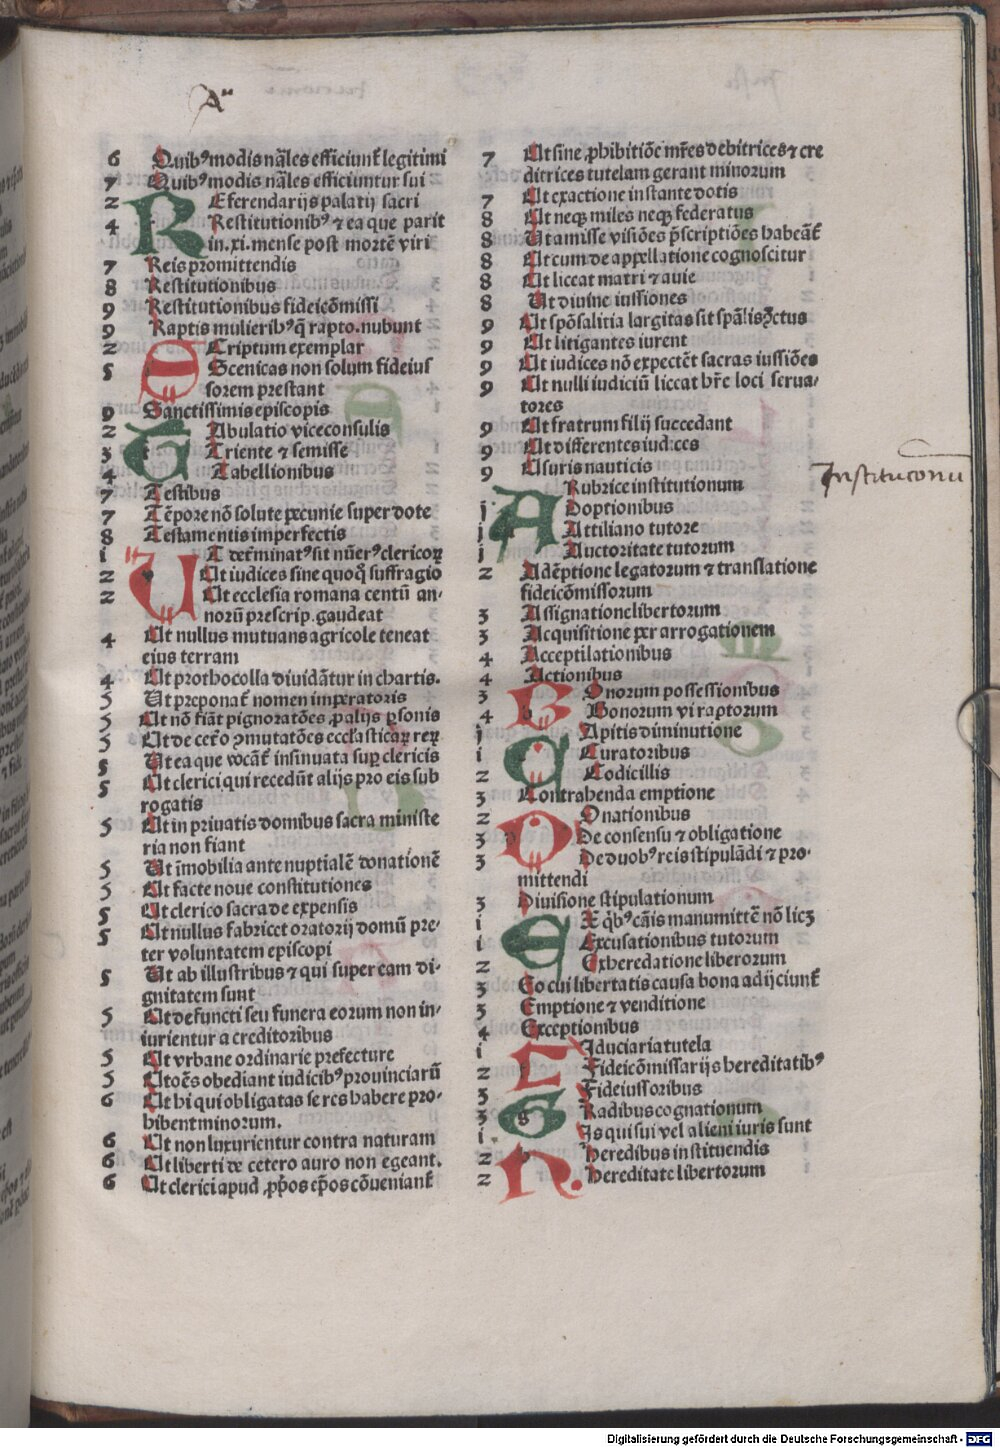 6 Quibꝰ modis nãles efficiunt̃ legitimi
7 Quibꝰ modis nãles efficiuntur sui
2 REferendarijs palatij sacri
4 Restitutionibꝰ ⁊ ea que parit
in .xi. mense post mortẽ viri
7 Reis promittendis
8 Restitutionibus
9 Restitutionibus fideicõmissi
9 Raptis mulieribꝰ q̃ rapto. nubunt
2 SCriptum exemplar
5 Scenicas non solum fideius
sorem prestant
9 Sanctissimis episcopis
2 TAbulatio viceconsulis
3 Triente ⁊ semisse
4 Tabellionibus
7 Testibus
7 Tẽpore nõ solute pecunie super dote
8 Testamentis imperfectis
i UT det̃minatꝰ sit nũerꝰ clericoꝝ
2 Ut iudices sine quoq̃ suffragio
2 Ut ecclesia romana centũ an-
norũ prescrip. gaudeat
4 Ut nullus mutuans agricole teneat
eius terram
4 Ut prothocolla diuidãtur in chartis.
5 Ut preponat̃ nomen imperatoris
5 Ut nõ fiãt pignoratões ꝓ alijs ꝑsonis
5 Ut de cet̃o ꝯmutatões eccl̃asticaꝝ reꝝ
5 Ut ea que vocãt̃ insinuata suꝑ clericis
5 Ut clerici qui recedũt alijs pro eis sub
rogatis
5 Ut in priuatis domibus sacra ministe
ria non fiant
5 Ut ĩmobilia ante nuptialẽ donationẽ
5 Ut facte noue constitutiones
5 Ut clerico sacra de expensis
5 Ut nullus fabricet oratorij domũ pre-
ter voluntatem episcopi
5 Ut ab illustribus ⁊ qui super eam di-
gnitatem sunt
5 Ut defuncti seu funera eorum non in-
iurientur a creditoribus
5 Ut vrbane ordinarie prefecture
5 Ut oẽs obediant iudicibꝰ prouinciarũ
6 Ut hi qui obligatas se res habere pro-
hibent minorum.
6 Ut non luxurientur contra naturam
6 Ut liberti de cetero auro non egeant.
6 Ut clerici apud ꝓp̃os ep̃os cõueniant̃
7 Ut sine ꝓhibitiõe mr̃es debitrices ⁊ cre
ditrices tutelam gerant minorum
7 Ut exactione instante dotis
8 Ut neqꝫ miles neqꝫ federatus
8 Ut amisse visiões p̃scriptiões habeãt̃
8 Ut cum de appellatione cognoscitur
8 Ut liccat matri ⁊ auie
8 Ut diuine iussiones
9 Ut spõsalitia largitas sit sp̃alis ꝯ̃ctus
9 Ut litigantes iurent
9 Ut iudices nõ expectẽt sacras iussiões
9 Ut nulli iudiciũ liccat hr̃e loci serua-
tores
9 Ut fratrum filij succedant
9 Ut differentes iudices
9 Usuris nauticis
Institucionũ
Rubrice institutionum
j ADoptionibus
j Attiliano tutore
j Auctoritate tutorum
2 Adẽptione legatorum ⁊ translatione
fideicõmissorum
3 Assignatione libertorum
3 Acquisitione per arrogationem
4 Acceptilationibus
4 Actionibus
3 BOnorum possessionibus
4 Bonorum vi raptorum
j CApitis diminutione
i Curatoribus
2 Codicillis
3 Contrahenda emptione
2 DOnationibus
3 De consensu ⁊ obligatione
3 De duobꝰ reis stipulãdi ⁊ pro-
mittendi
3 Diuisione stipulationum
i EX q̃bꝰ cãis manumittẽ nõ licꝫ
i Excusationibus tutorum
2 Exheredatione liberorum
3 Eo cui libertatis causa bona adijciunt̃
3 Emptione ⁊ venditione
4 Exceptionibus
i FIduciaria tutela
2 Fideicõmissarijs hereditatibꝰ
3 Fideiussoribus
3 GRadibus cognationum
i His qui sui vel alieni iuris sunt
2 Heredibus instituendis
2 Hereditate libertorum
Digitalisierung gefördert durch die Deutsche Forschungsgemeinschaft - DFG